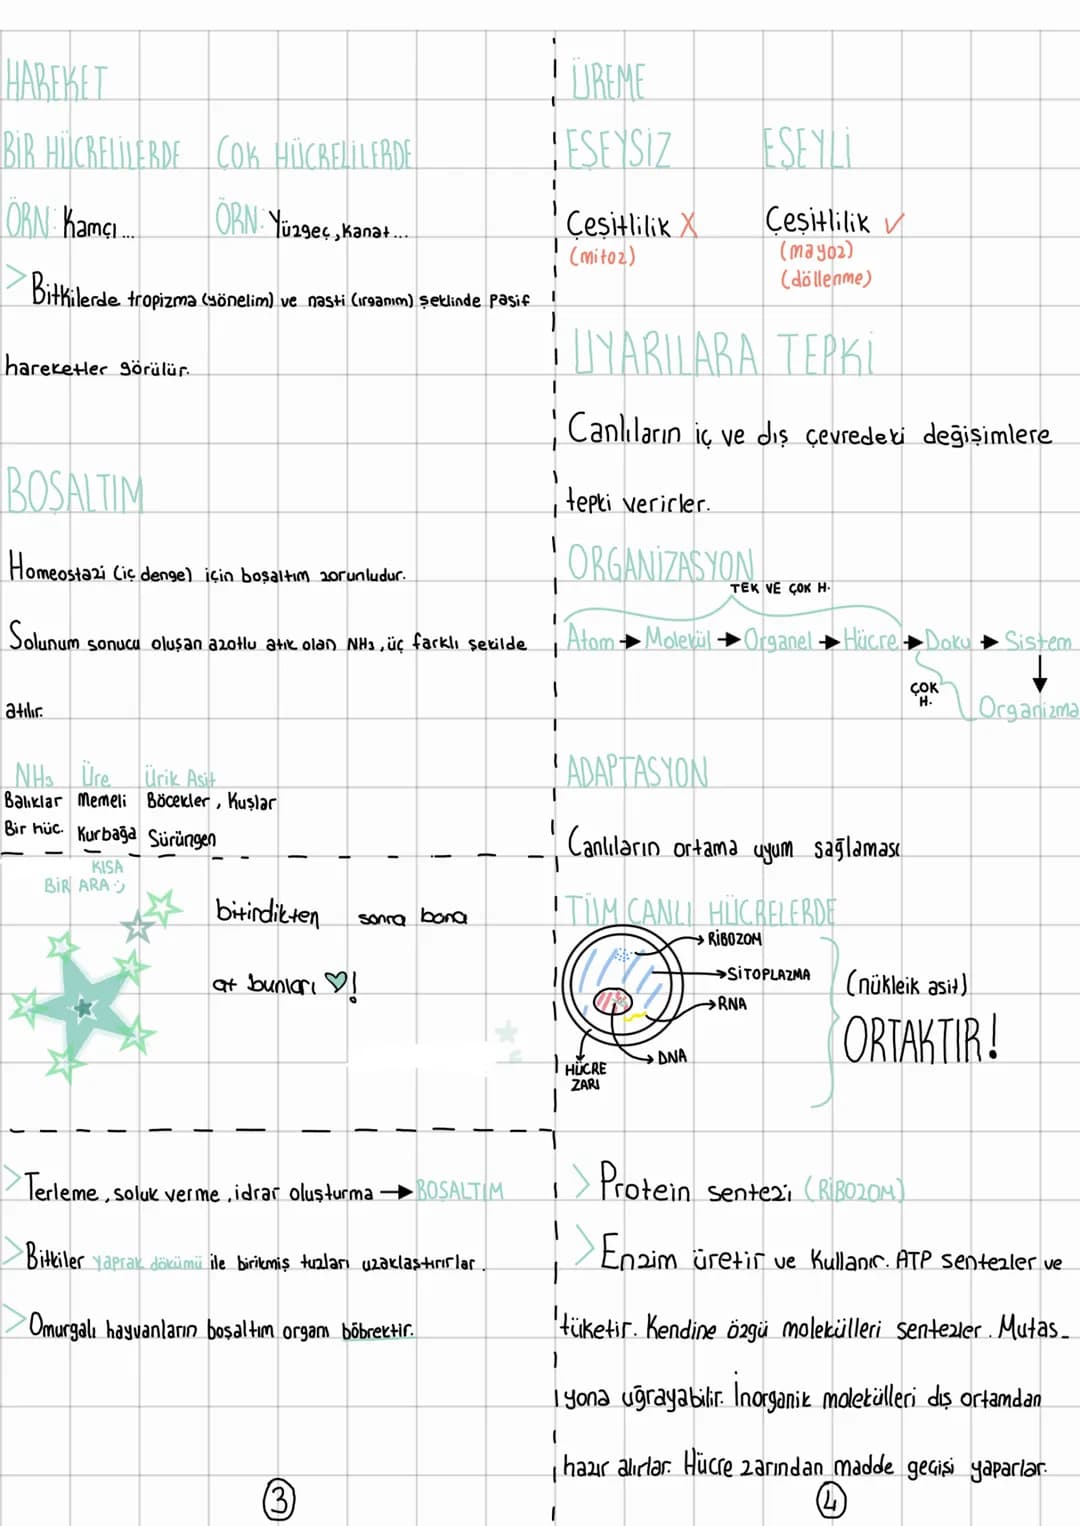 HAREKET
BİR HÜCRELİLERDE ÇOK HÜCRELİLERDE
ÖRN: Kamçı... ÖRN: Yüzgeç, kanat...
> Bitkilerde tropizma (yönelim) ve nasti (ırganım) şeklinde pasif
hareketler görülür.
BOŞALTIM
Homeostazi (iç denge) için boşaltım zorunludur.
Solunum sonucu oluşan azotlu atık olan NH3, üç farklı şekilde
atılır.
NH3 Üre Ürik Asit
Balıklar Memeli Böcekler, Kuşlar
Bir hüc. Kurbağa Sürüngen
KISA
BİR ARA :)
bitirdikten sonra bana
at bunları ♡!
> Terleme, soluk verme, idrar oluşturma → BOŞALTIM
> Bitkiler yaprak dökümü ile birikmiş tuzları uzaklaştırırlar.
> Omurgalı hayvanların boşaltım organı böbrektir.
3
ÜREME
EŞEYSİZ EŞEYLİ
Çeşitlilik X Çeşitlilik ✓
(mitoz) (mayoz)
(döllenme)
UYARILARA TEPKİ
Canlıların iç ve dış çevredeki değişimlere
tepki verirler.
ORGANİZASYON
TEK VE ÇOK H.
Atom → Molekül → Organel → Hücre → Doku → Sistem
ÇOK
H.
Organizma
ADAPTASYON
Canlıların ortama uyum sağlaması
TÜM CANLI HÜCRELERDE
RİBOZOM
SİTOPLAZMA
RNA
DNA
HÜCRE
ZARI
(nükleik asit)
ORTAKTIR!
> Protein sentezi (RİBOZOM)
> Enzim üretir ve Kullanır. ATP sentezler ve
tüketir. Kendine özgü molekülleri sentezler. Mutas-
yona uğrayabilir. İnorganik molekülleri dış ortamdan
hazır alırlar. Hücre zarından madde geçişi yaparlar.
4